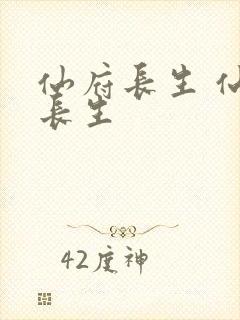 仙府長生 仙
長生
42度神